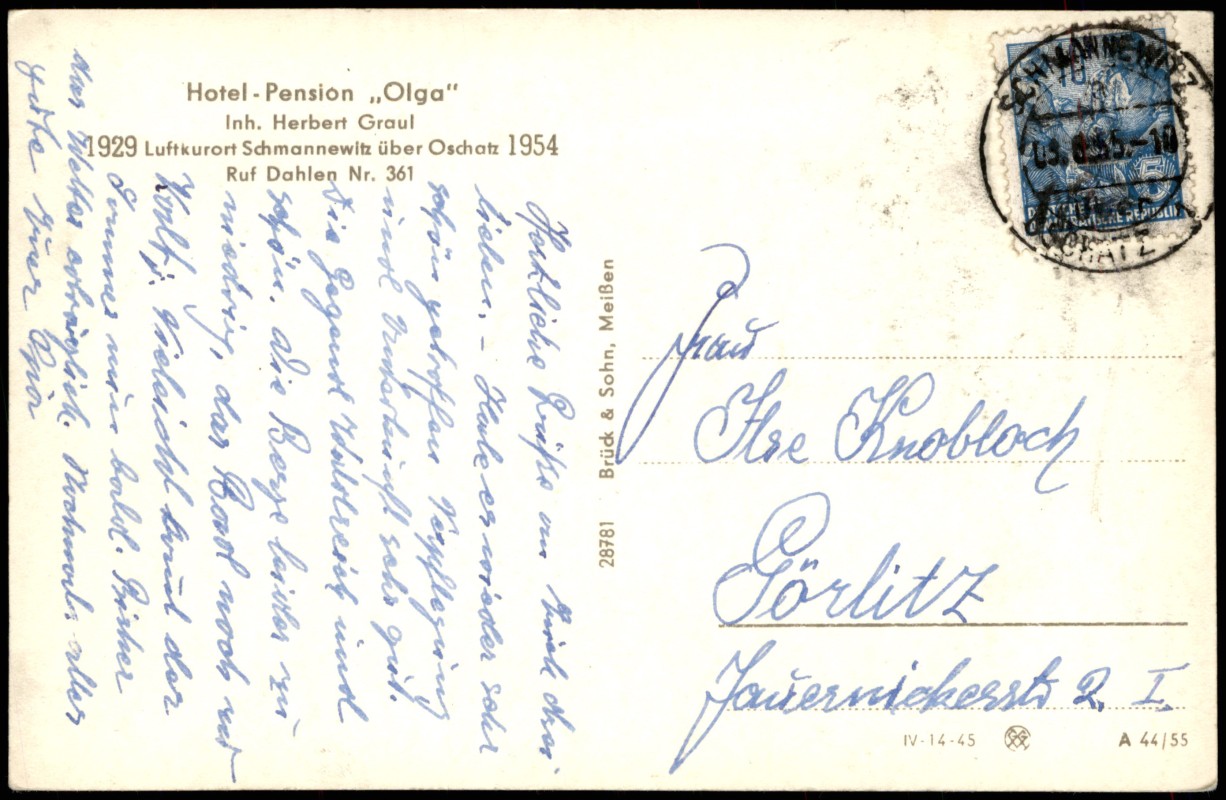 Hotel-Pension „Olga“
Inh. Herbert Graul
1929 Luftkurort Schmannewitz über Oschatz 1954
Ruf Dahlen Nr. 361
Herzliche Grüße an Euch drei
Lieben, – Habe es wieder sehr
schön getroffen Verpflegung
und Unterkunft sehr gut.
Die Gegend Waldreich und
schön, die Berge leider zu
niedrig, das Bad noch
Vielleicht kommt der
Sommer nun bald. Bisher
das Wetter erträglich. Nochmals alles
gute Eurer Opa
28781 Brück & Sohn, Meißen
SCHMANNEWITZ
OSCHATZ
5
DEUTSCHE DEMOKRATISCHE REPUBLIK
Frau
Ilse Knobloch
Görlitz
Jauernickerstr 2. I.
IV-14-45
A 44/55